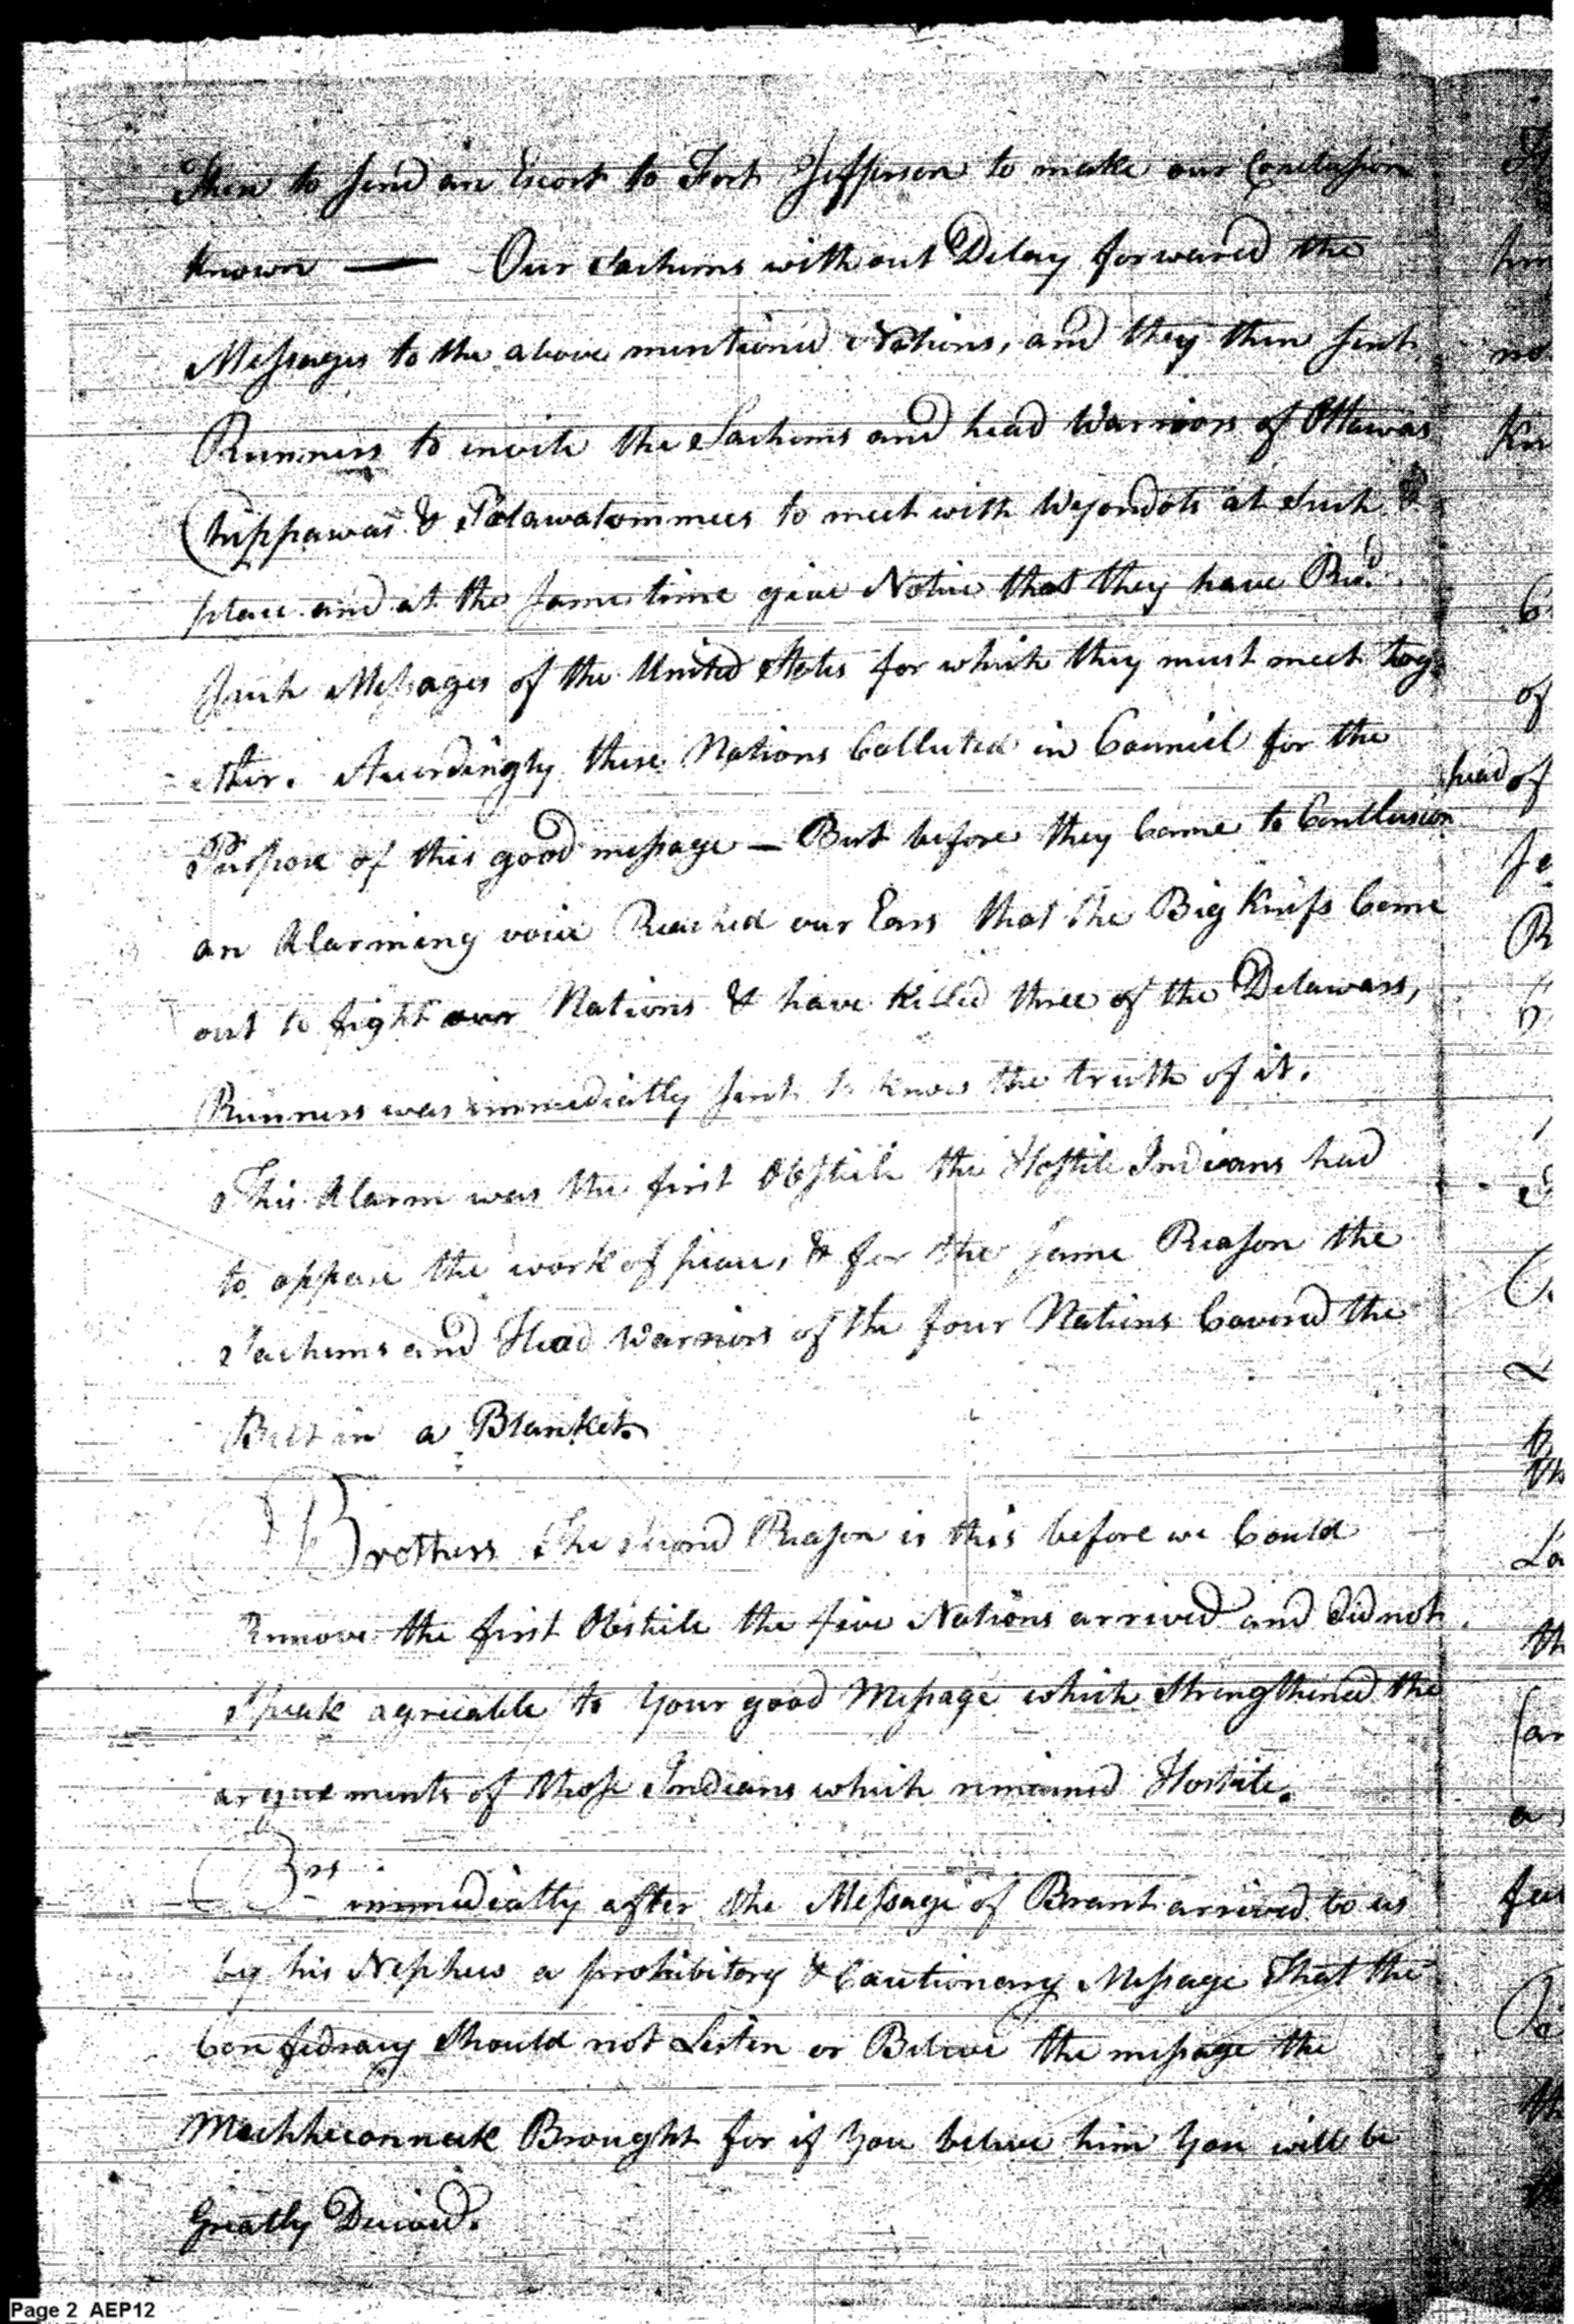 Then to send an Escort to Fort Jefferson to make our Conclusion
known — Our Sachems without Delay forwared the
Messages to the above mentioned Nations, and they then sent
Runners to invite the Sachems and head Warriors of Ottawas
Chippawas & Potawatommees to meet with Wyondots at Such
place and at the same time give Notice that they have Recd
Such Messages of the United States for which they must meet tog-
ether. Accordingly these Nations Collected in Council for the
Purpose of this good message — But before they Came to Conclusion
an Alarming voice Reached our Ears that the Big Knifs Come
out to fight our Nations & have killed three of the Delawars,
Runners was immediatly sent to know the truth of it.
This Alarm was the first Obstile the Hostile Indians had
to oppose the work of peace, & for the same Reason the
Sachems and Head Warriors of the four Nations Covered the
Belt in a Blanket.
Brothers The second Reason is this before we Could
Remove the first Obstile the five Nations arrived and did not
Speak agreeable to your good Message which Strengthened the
arguements of those Indians which remained Hostile.
3rd immediatly after the Message of Brant arrived to us
by his Nephew a prohibitory & Cautionary Message That the
Confedracy Should not Listen or Beleive the message the
Muhheconnuk Brought for if you beleive him you will be
Greatly Deceived.
Page 2 AEP12